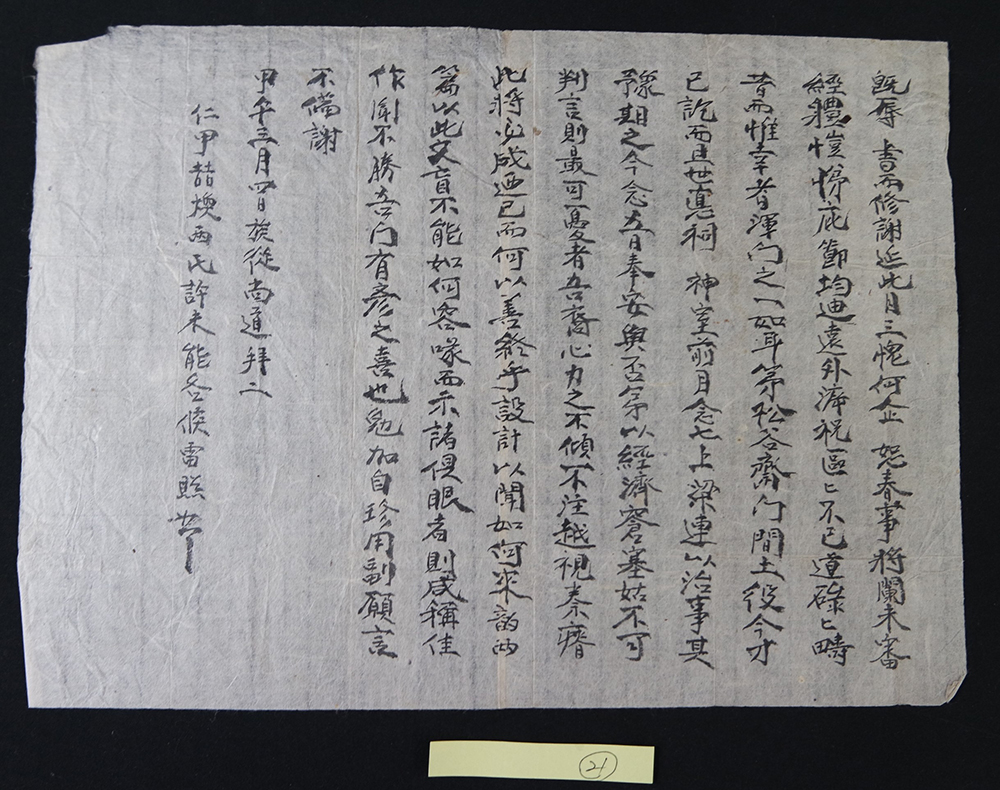 旣辱 書而修謝迄此月三愧何企 恕春事將闌未審
經體愷悌庇節均迪遠外溸祝區〻不已道碌〻疇
昔而惟幸者渾門之一如耳第松谷齋門間土役今才
已訖而世德祠 神室前月念七上梁連以治事其
豫期之今念五日奉安與否第以經濟窘塞姑不可
判言則最可憂者吾裔心力之不傾不注越視秦瘠
此將完成迺已而何以善終乎設計以聞如何來韵兩
篇以此文盲不能如何容喙而示諸俱眼者則咸稱佳
作聞不勝吾門有彥之喜也勉加自珍用副願言
不備謝
甲午三月四日族從尚道拜二
仁甲喆煥兩氏許未能各候雷照
21